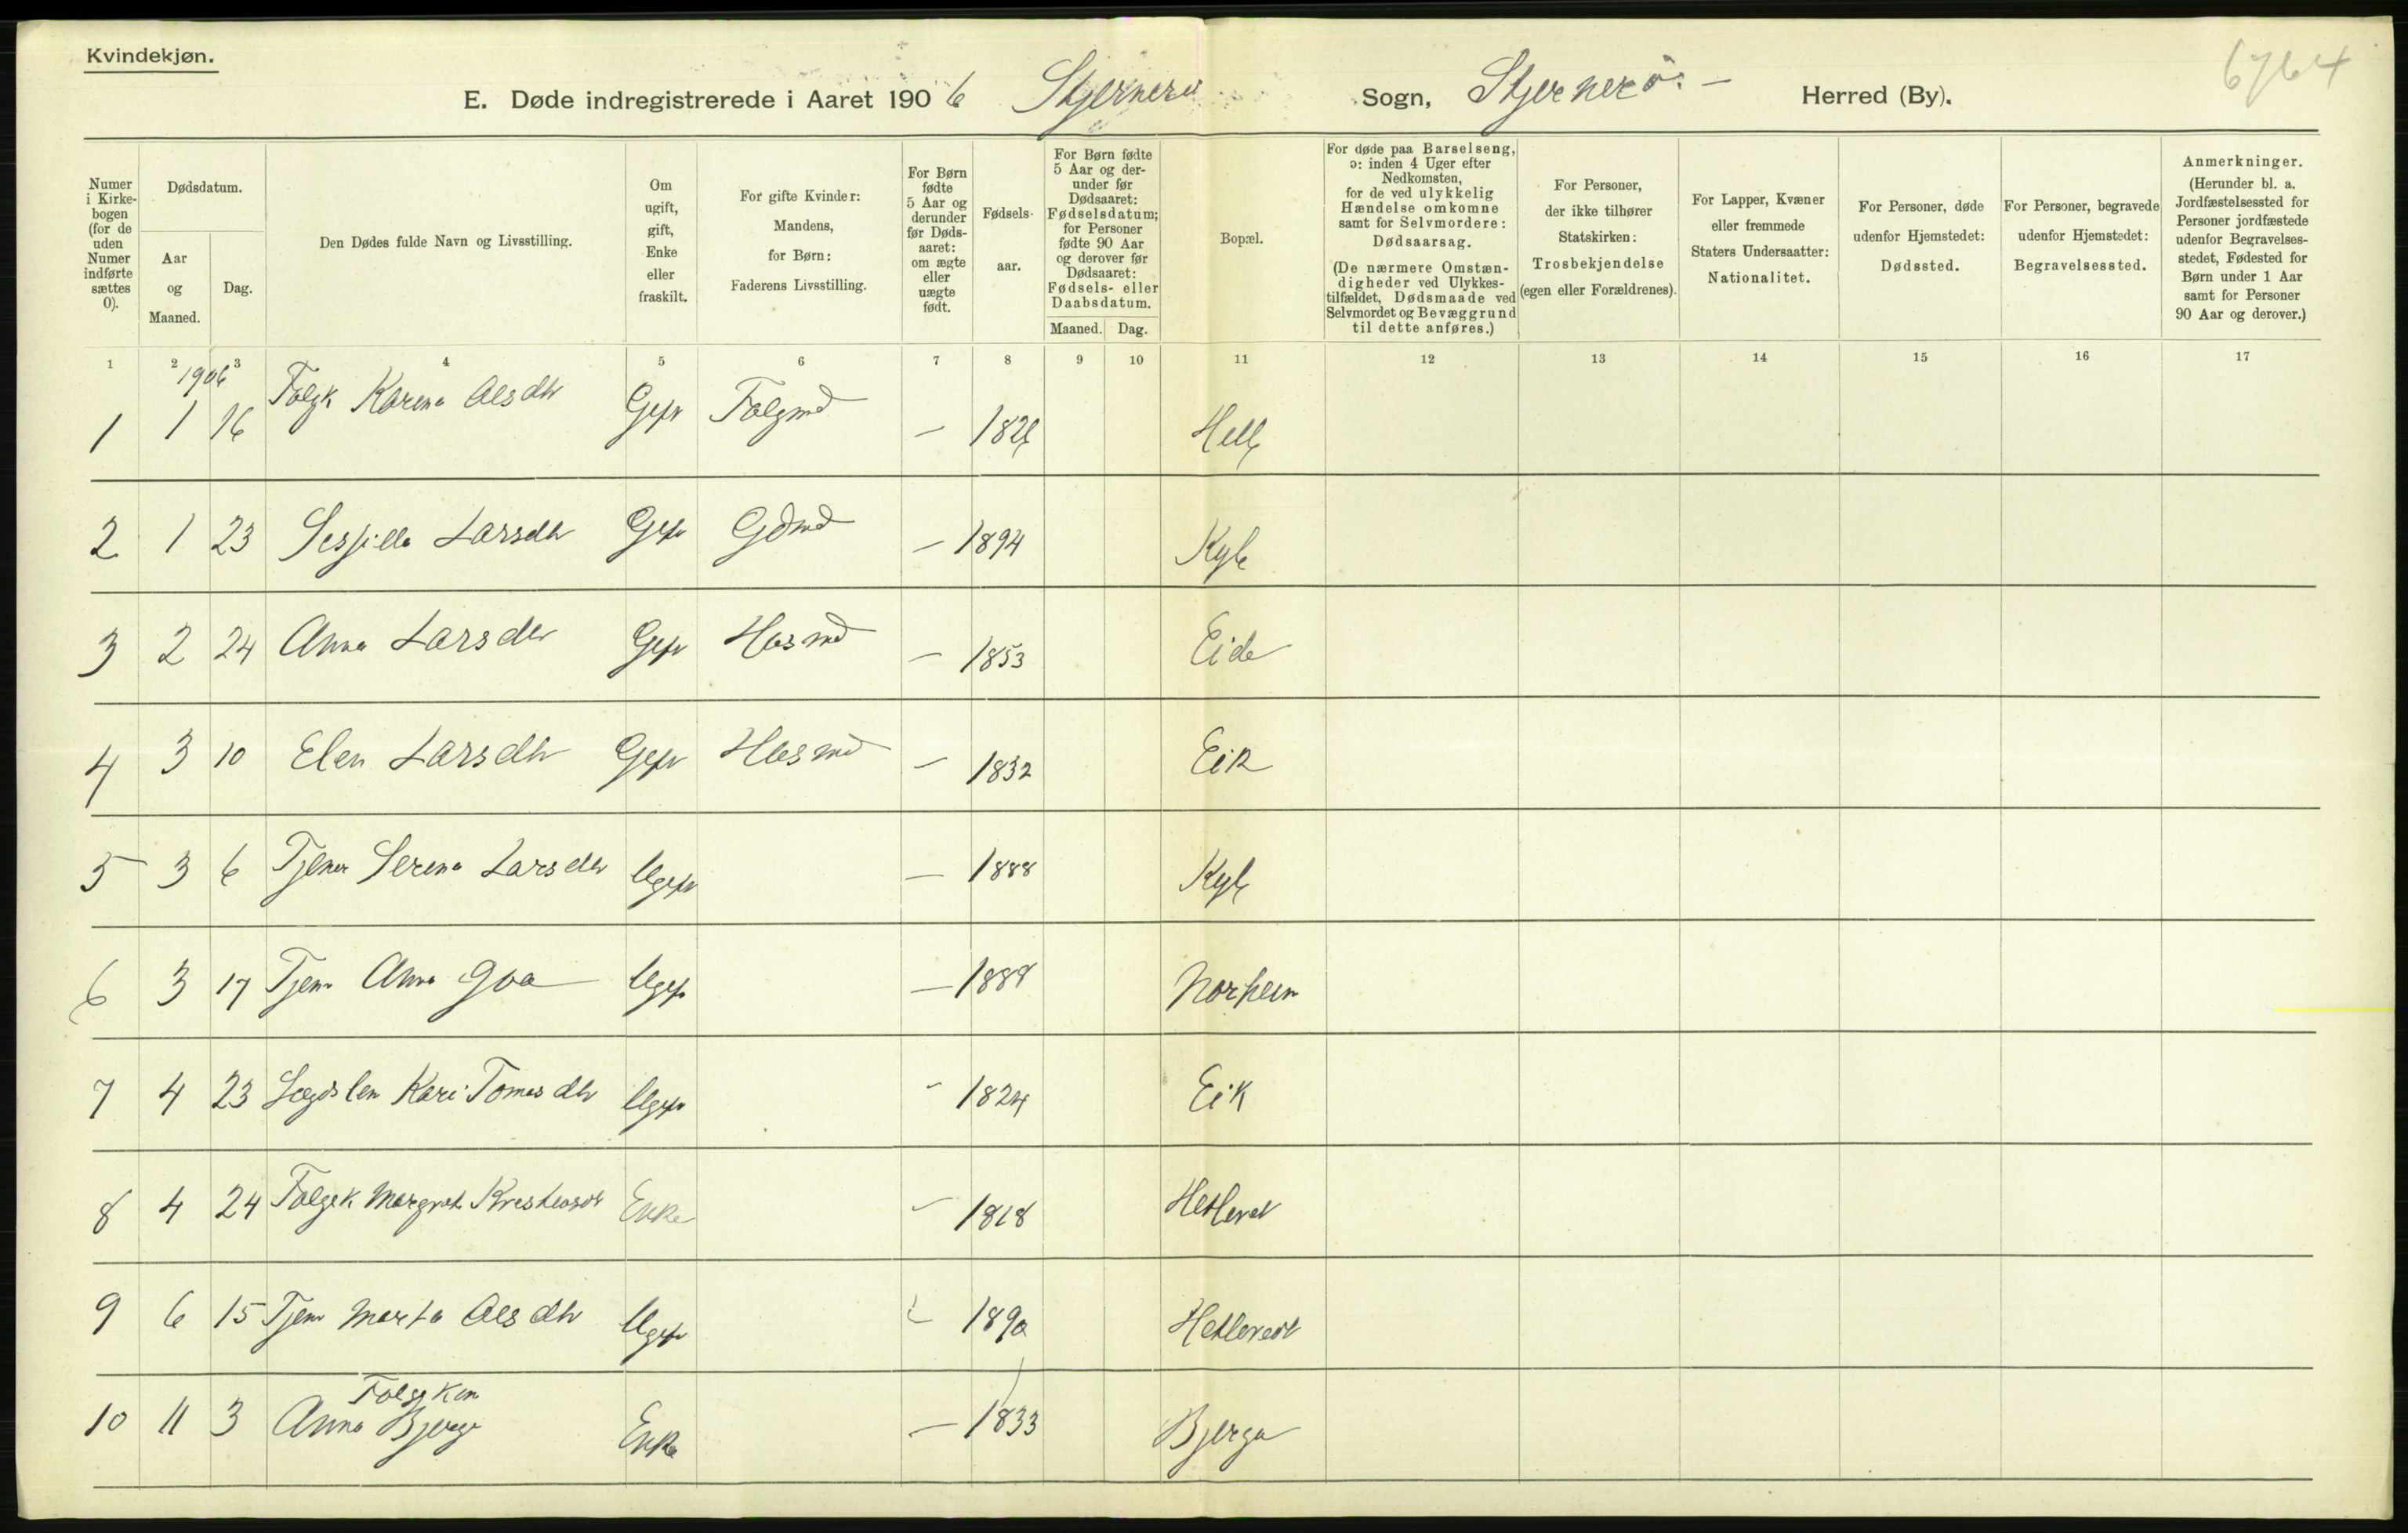 Kvindekjøn.
6764
E. Døde indregistrerede i Aaret 1906 Stjernerø Sogn, Stjernerø. – Herred (By).
Numer i Kirkebogen (for de uden Numer indførte sættes 0).
Dødsdatum.
Aar og Maaned.
Dag.
Den Dødes fulde Navn og Livsstilling.
Om ugift, gift, Enke eller fraskilt.
For gifte Kvinder: Mandens, for Børn: Faderens Livsstilling.
For Børn fødte 5 Aar og derunder før Dødsaaret: om ægte eller uægte født.
Fødselsaar.
For Børn fødte 5 Aar og derunder før Dødsaaret: Fødselsdatum; for Personer fødte 90 Aar og derover før Dødsaaret: Fødsels- eller Daabsdatum.
Maaned. Dag.
Bopæl.
For døde paa Barselseng, ɔ: inden 4 Uger efter Nedkomsten, for de ved ulykkelig Hændelse omkomne samt for Selvmordere: Dødsaarsag.
(De nærmere Omstændigheder ved Ulykkestilfældet, Dødsmaade ved Selvmordet og Bevæggrund til dette anføres.)
For Personer, der ikke tilhører Statskirken: Trosbekjendelse (egen eller Forældrenes).
For Lapper, Kvæner eller fremmede Staters Undersaatter: Nationalitet.
For Personer, døde udenfor Hjemstedet: Dødssted.
For Personer, begravede udenfor Hjemstedet: Begravelsessted.
Anmerkninger. (Herunder bl. a. Jordfæstelsessted for Personer jordfæstede udenfor Begravelsesstedet, Fødested for Børn under 1 Aar samt for Personer 90 Aar og derover.)
1 2 3 4 5 6 7 8 9 10 11 12 13 14 15 16 17
1906
1 1 16 Folgk Karena Olsdtr Gift Folgmd – 1826 Helle
2 1 23 Larsdtr Gift Gdmd – 1894 Kyle
3 2 24 Anna Larsdtr Gift Husmd – 1853 Eide
4 3 10 Elen Larsdtr Gift Husmd – 1832 Eik
5 3 6 Tjener Serena Larsdtr Ugift – 1888 Kyle
6 3 17 Tjen Anna Goa Ugift – 1888 Norheim
7 4 23 Lægdslem Kari Tomasdtr Ugift – 1824 Eik
8 4 24 Folgek Margrete Enke – 1818 Hetlevet
9 6 15 Tjen Marta Olsdtr Ugift – 1890 Hetlevedt
Folgkon
10 11 3 Anna Bjerga Enke – 1833 Bjerga